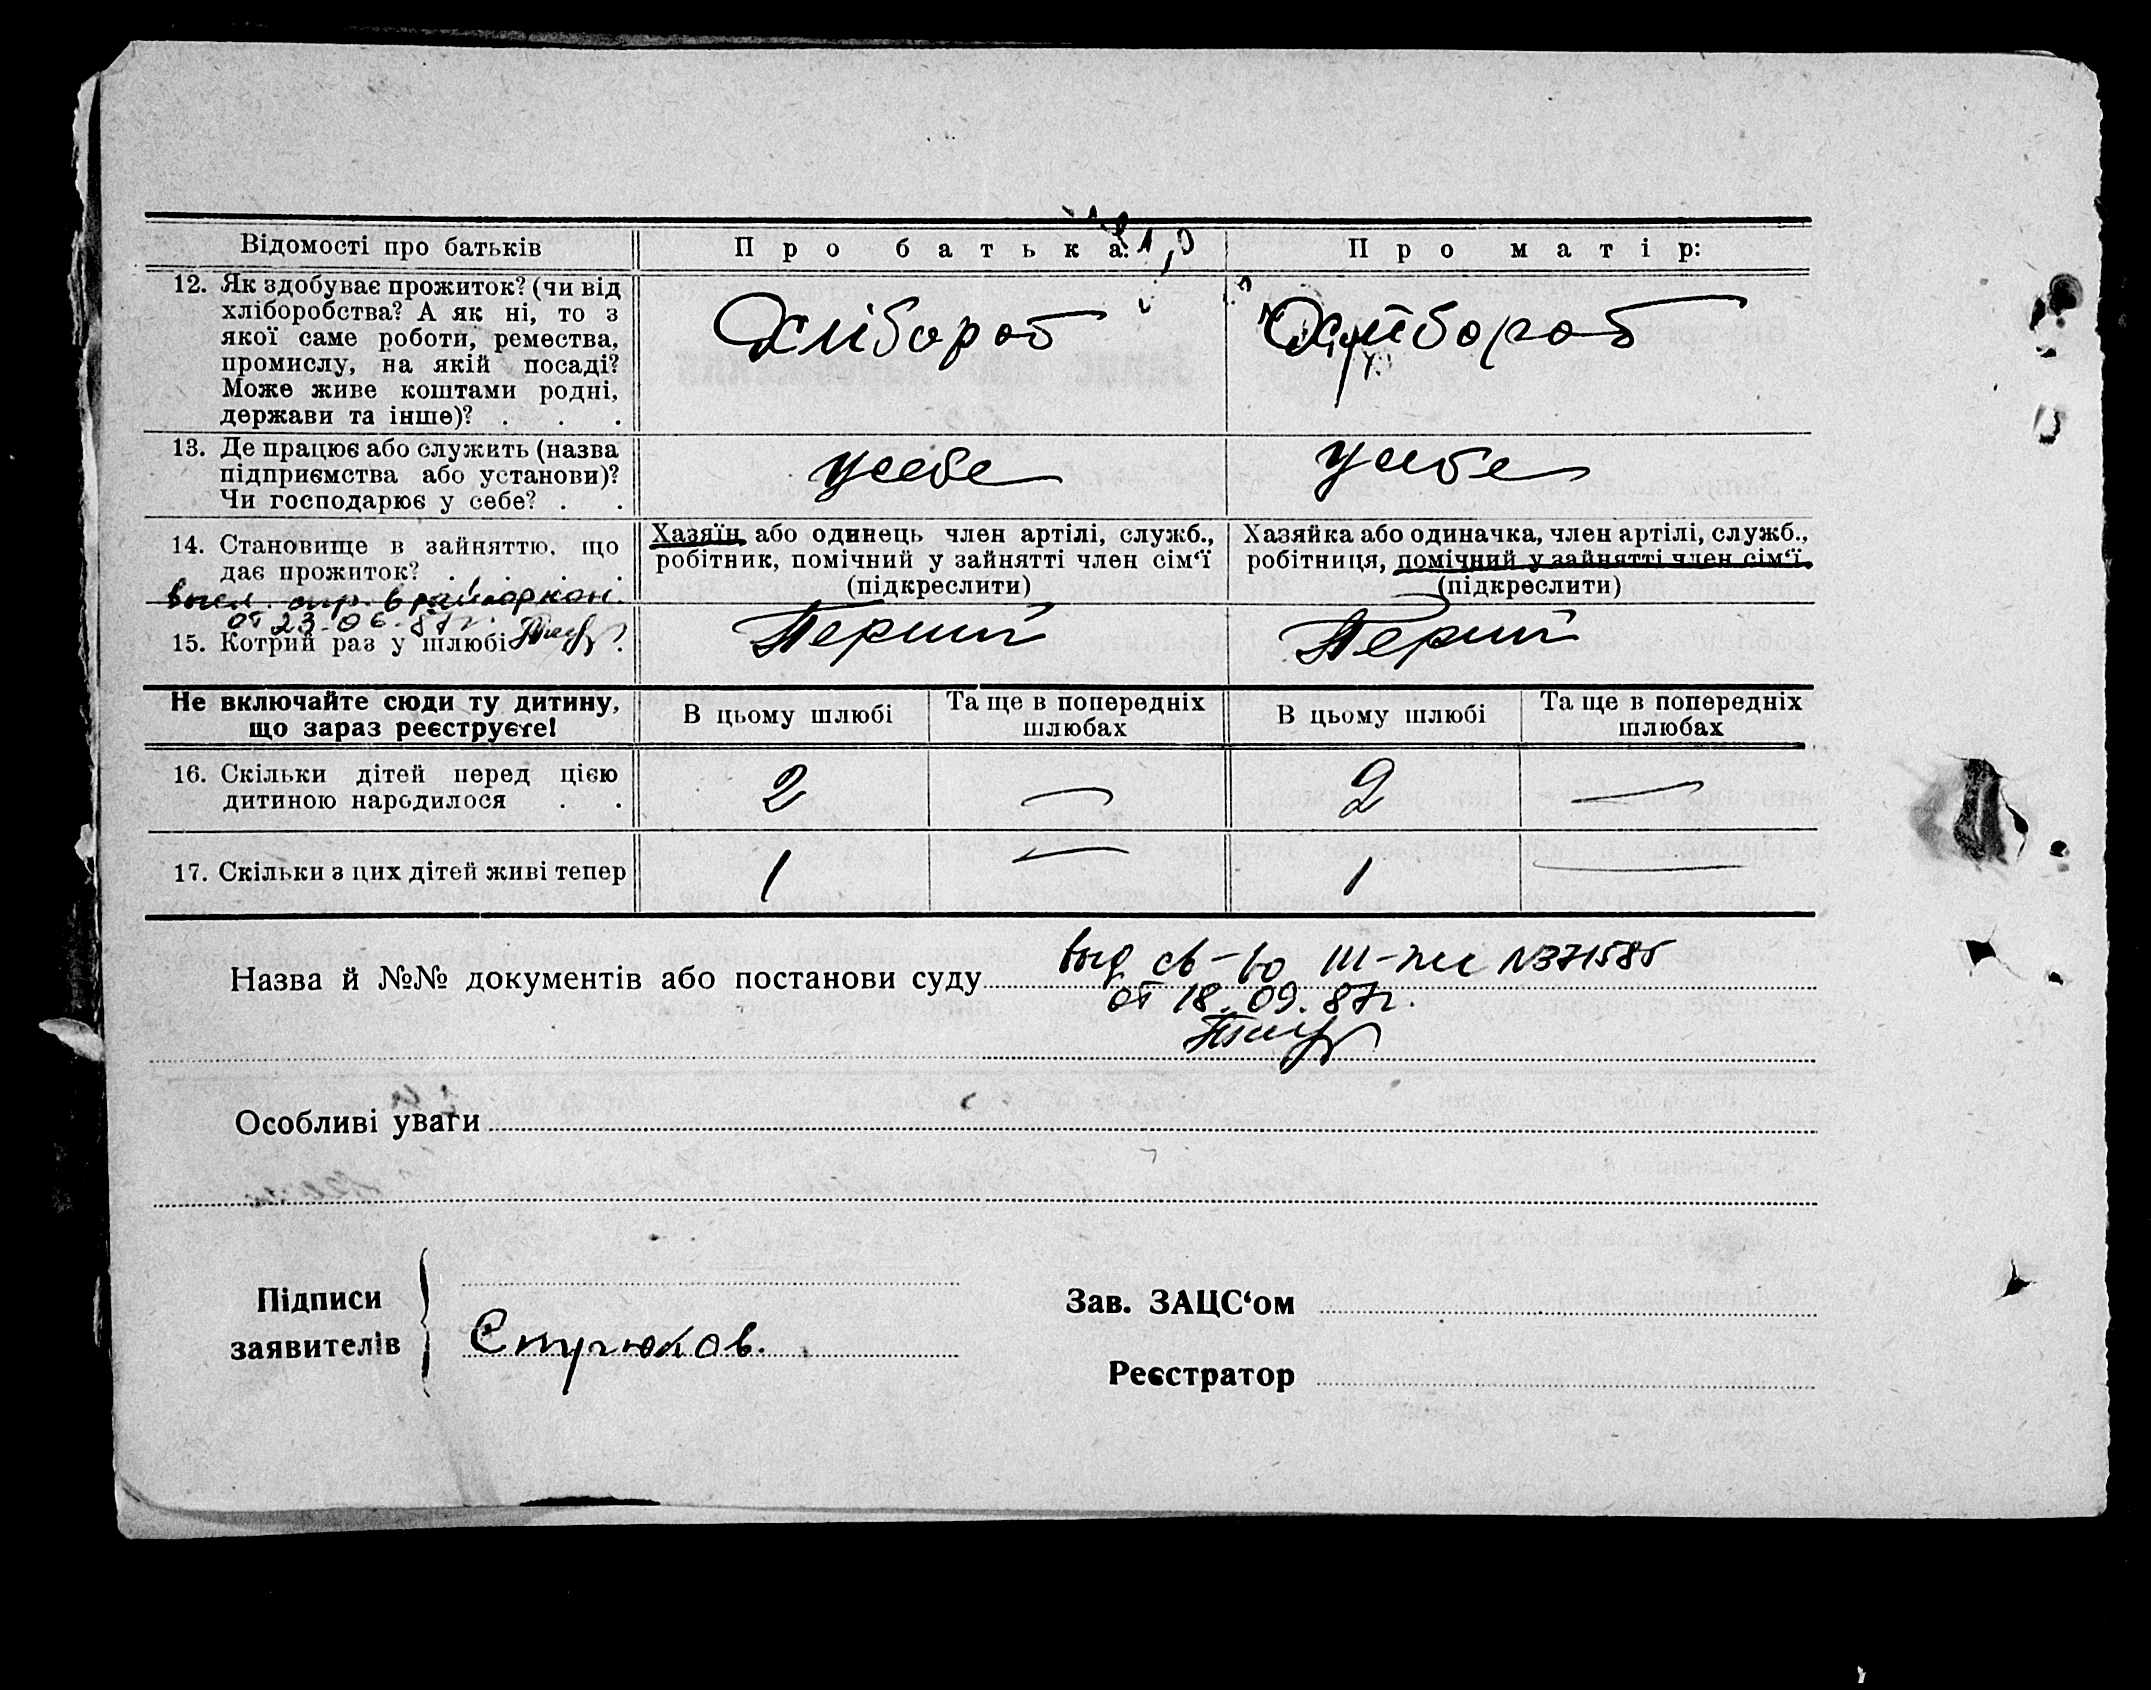 Відомості про батьків
Про батька:
Про матір:
12. Як здобуває прожиток? (чи від
хліборобства? А як ні, то з
якої саме роботи, ремества,
промислу, на якій посаді?
Може живе коштами родні,
держави та інше)? . . .
Хлібороб
Хлібороб
13. Де працює або служить (назва
підприємства або установи)?
Чи господарює у себе? . .
у себе
у себе
14. Становище в зайняттю, що
дає прожиток? . . . .
Хазяїн або одинець член артілі, служб.,
робітник, помічний у зайнятті член сім‘ї
(підкреслити)
Хазяйка або одиначка, член артілі, служб.,
робітниця, помічний у зайнятті член сім‘ї
(підкреслити)
высл. спр. в
от 23.06.87г.
15. Котрий раз у шлюбі .
Перший
Перший
Не включайте сюди ту дитину,
що зараз реєструєте!
В цьому шлюбі
Та ще в попередніх
шлюбах
В цьому шлюбі
Та ще в попередніх
шлюбах
16. Скільки дітей перед цією
дитиною народилося . .
2
—
2
—
17. Скільки з цих дітей живі тепер
1
—
1
—
Назва й №№ документів або постанови суду
выд св-во III-ЖМ N371585
от 18.09.87г.
Особливі уваги
Підписи
заявителів
Стрюков.
Зав. ЗАЦС‘ом
Реєстратор